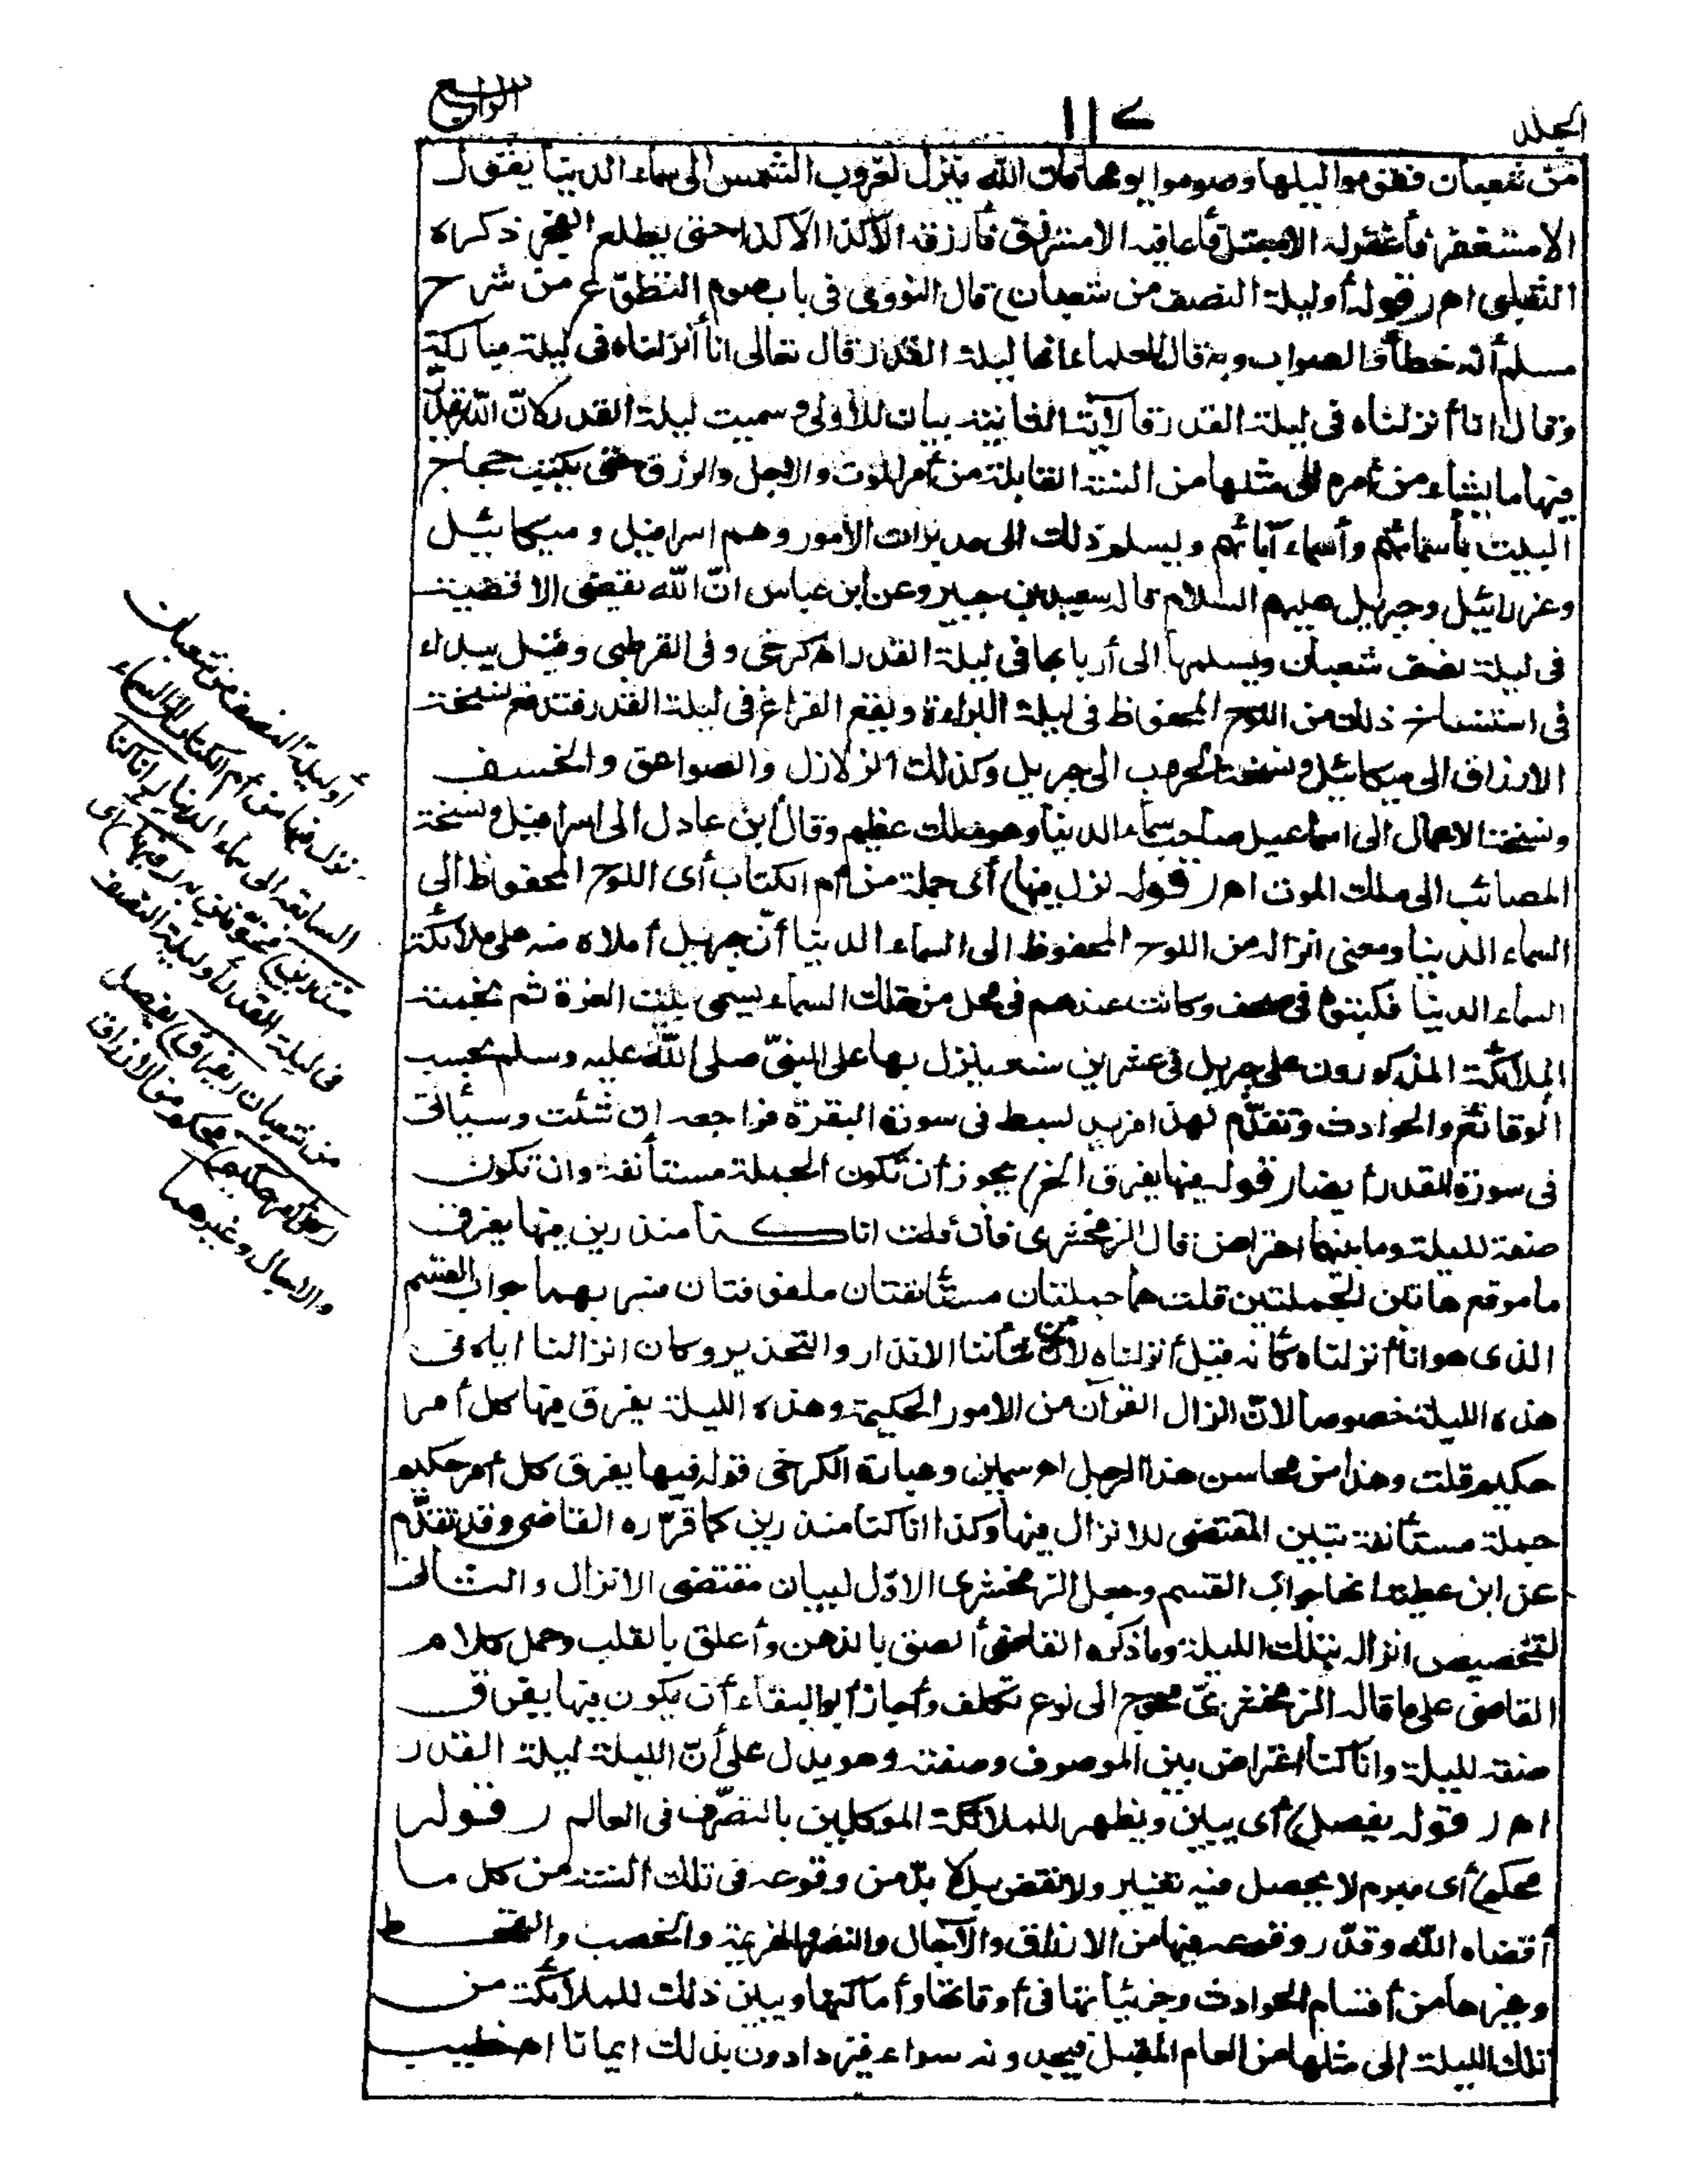 المجلد
١١٤
الرابع
من شعبان فقوموا ليلها وصوموا يومها فان الله ينزل لغروب الشمس الى سماء الدنيا يقول
الا مستغفر فأغفر له الا مبتلى فأعافيه الا مسترزق فأرزقه الا كذا الا كذا حتى يطلع الفجر ذكراه
الثعلبى اه (قوله أو ليلة النصف من شعبان) قال النووى فى باب صوم التطوع من شرح
مسلم أنه خطأ والصواب وبه قال العلماء انها ليلة القدر قال تعالى انا أنزلناه فى ليلة مباركة
وقال انا أنزلناه فى ليلة القدر فالآية الثانية بيان للأولى وسميت ليلة القدر لانّ الله يقدّر
فيها ما يشاء من أمره الى مثلها من السنة القابلة من أمر الموت والاجل والرزق حتى يكتب حجاج
البيت بأسمائهم وأسماء آبائهم ويسلم ذلك الى مدبرات الأمور وهم اسرافيل وميكائيل
وعزرائيل وجبريل عليهم السلام قاله سعيد بن جبير وعن ابن عباس انّ الله يقضى الاقضية
فى ليلة نصف شعبان ويسلمها الى أربابها فى ليلة القدر اه كرخى وفى القرطبى وقيل يبداء
فى استنساخ ذلك من اللوح المحفوظ فى ليلة البراءة ويقع الفراغ فى ليلة القدر فتدفع نسخة
الارزاق الى ميكائيل ونسخة الحرب الى جبريل وكذلك الزلازل والصواعق والخسف
ونسخة الاعمال الى اسماعيل صاحب سماء الدنيا وهو ملك عظيم وقال ابن عادل الى اسرافيل ونسخة
المصائب الى ملك الموت اه (قوله نزل فيها) أى جملة من أم الكتاب أى اللوح المحفوظ الى
السماء الدنيا ومعنى انزاله من اللوح المحفوظ الى السماء الدنيا أنّ جبريل أملاه منه على ملائكة
السماء الدنيا فكتبوه فى صحف وكانت عندهم فى محل من تلك السماء يسمى بيت العزة ثم نجمته
الملائكة المذكورون على جبريل فى عشرين سنة ينزل بها على النبىّ صلى الله عليه وسلم بحسب
الوقائع والحوادث وتقدّم لهذا مزيد بسط فى سورة البقرة فراجعه ان شئت وسيأتى
فى سورة القدر أيضا (قوله فيها يفرق الخ) يجوز أن تكون الجملة مستأنفة وان تكون
صفة لليلة وما بينهما اعتراض قال الزمخشرى فان قلت انا كنا منذرين فيها يفرق
ما موقع هاتين الجملتين قلت هما جملتان مستأنفتان ملفوفتان فسر بهما جواب القسم
الذى هو انا أنزلناه كأنه قيل أنزلناه لأن من شأننا الانذار والتحذير وكان انزالنا اياه فى
هذه الليلة خصوصا لانّ انزال القرآن من الامور الحكيمة وهذه الليلة يفرق فيها كل أمر
حكيم قلت وهذا من محاسن هذا الرجل اه سمين وعبارة الكرخى قوله فيها يفرق كل أمر حكيم
جملة مستأنفة تبين المقتضى للانزال فيها وكذا انا كنا منذرين كما قرّره القاضى وقد تقدّم
عن ابن عطية انها جواب القسم وجعل الزمخشرى الاوّل لبيان مقتضى الانزال والثانى
لتخصيص انزاله بتلك الليلة وما ذكره القاضى ألصق بالذهن وأعلق بالقلب وحمل كلام
القاضى على ما قاله الزمخشرىّ محوج الى نوع تكلف وأجاز أبو البقاء أن يكون فيها يفرق
صفة لليلة وانا كنا اعتراض بين الموصوف وصفته وهو يدل على أنّ الليلة ليلة القدر
اه (قوله يفصل) أى يبين ويظهر للملائكة الموكلين بالتصرّف فى العالم (قوله
محكم) أى مبرم لا يحصل فيه تغيير ولا نقض بل لا بدّ من وقوعه فى تلك السنة من كل ما
أقضاه الله وقدّر وقوعه فيها من الارزاق والآجال والنصر والهزيمة والخصب والقحط
وغيرها من أقسام الحوادث وجزئياتها فى أوقاتها وأماكنها ويبين ذلك للملائكة من
تلك الليلة الى مثلها من العام المقبل فيجدونه سواء فيزدادون بذلك ايمانا اه خطيب
أو ليلة النصف من شعبان
نزل فيها من أم الكتاب من السماء
السابعة الى سماء الدنيا (انا كنا
منذرين) مخوفين به (فيها) أى
فى ليلة القدر أو ليلة النصف
من شعبان (يفرق) يفصل
(كل أمر حكيم) محكم من الارزاق
والآجال وغيرهما